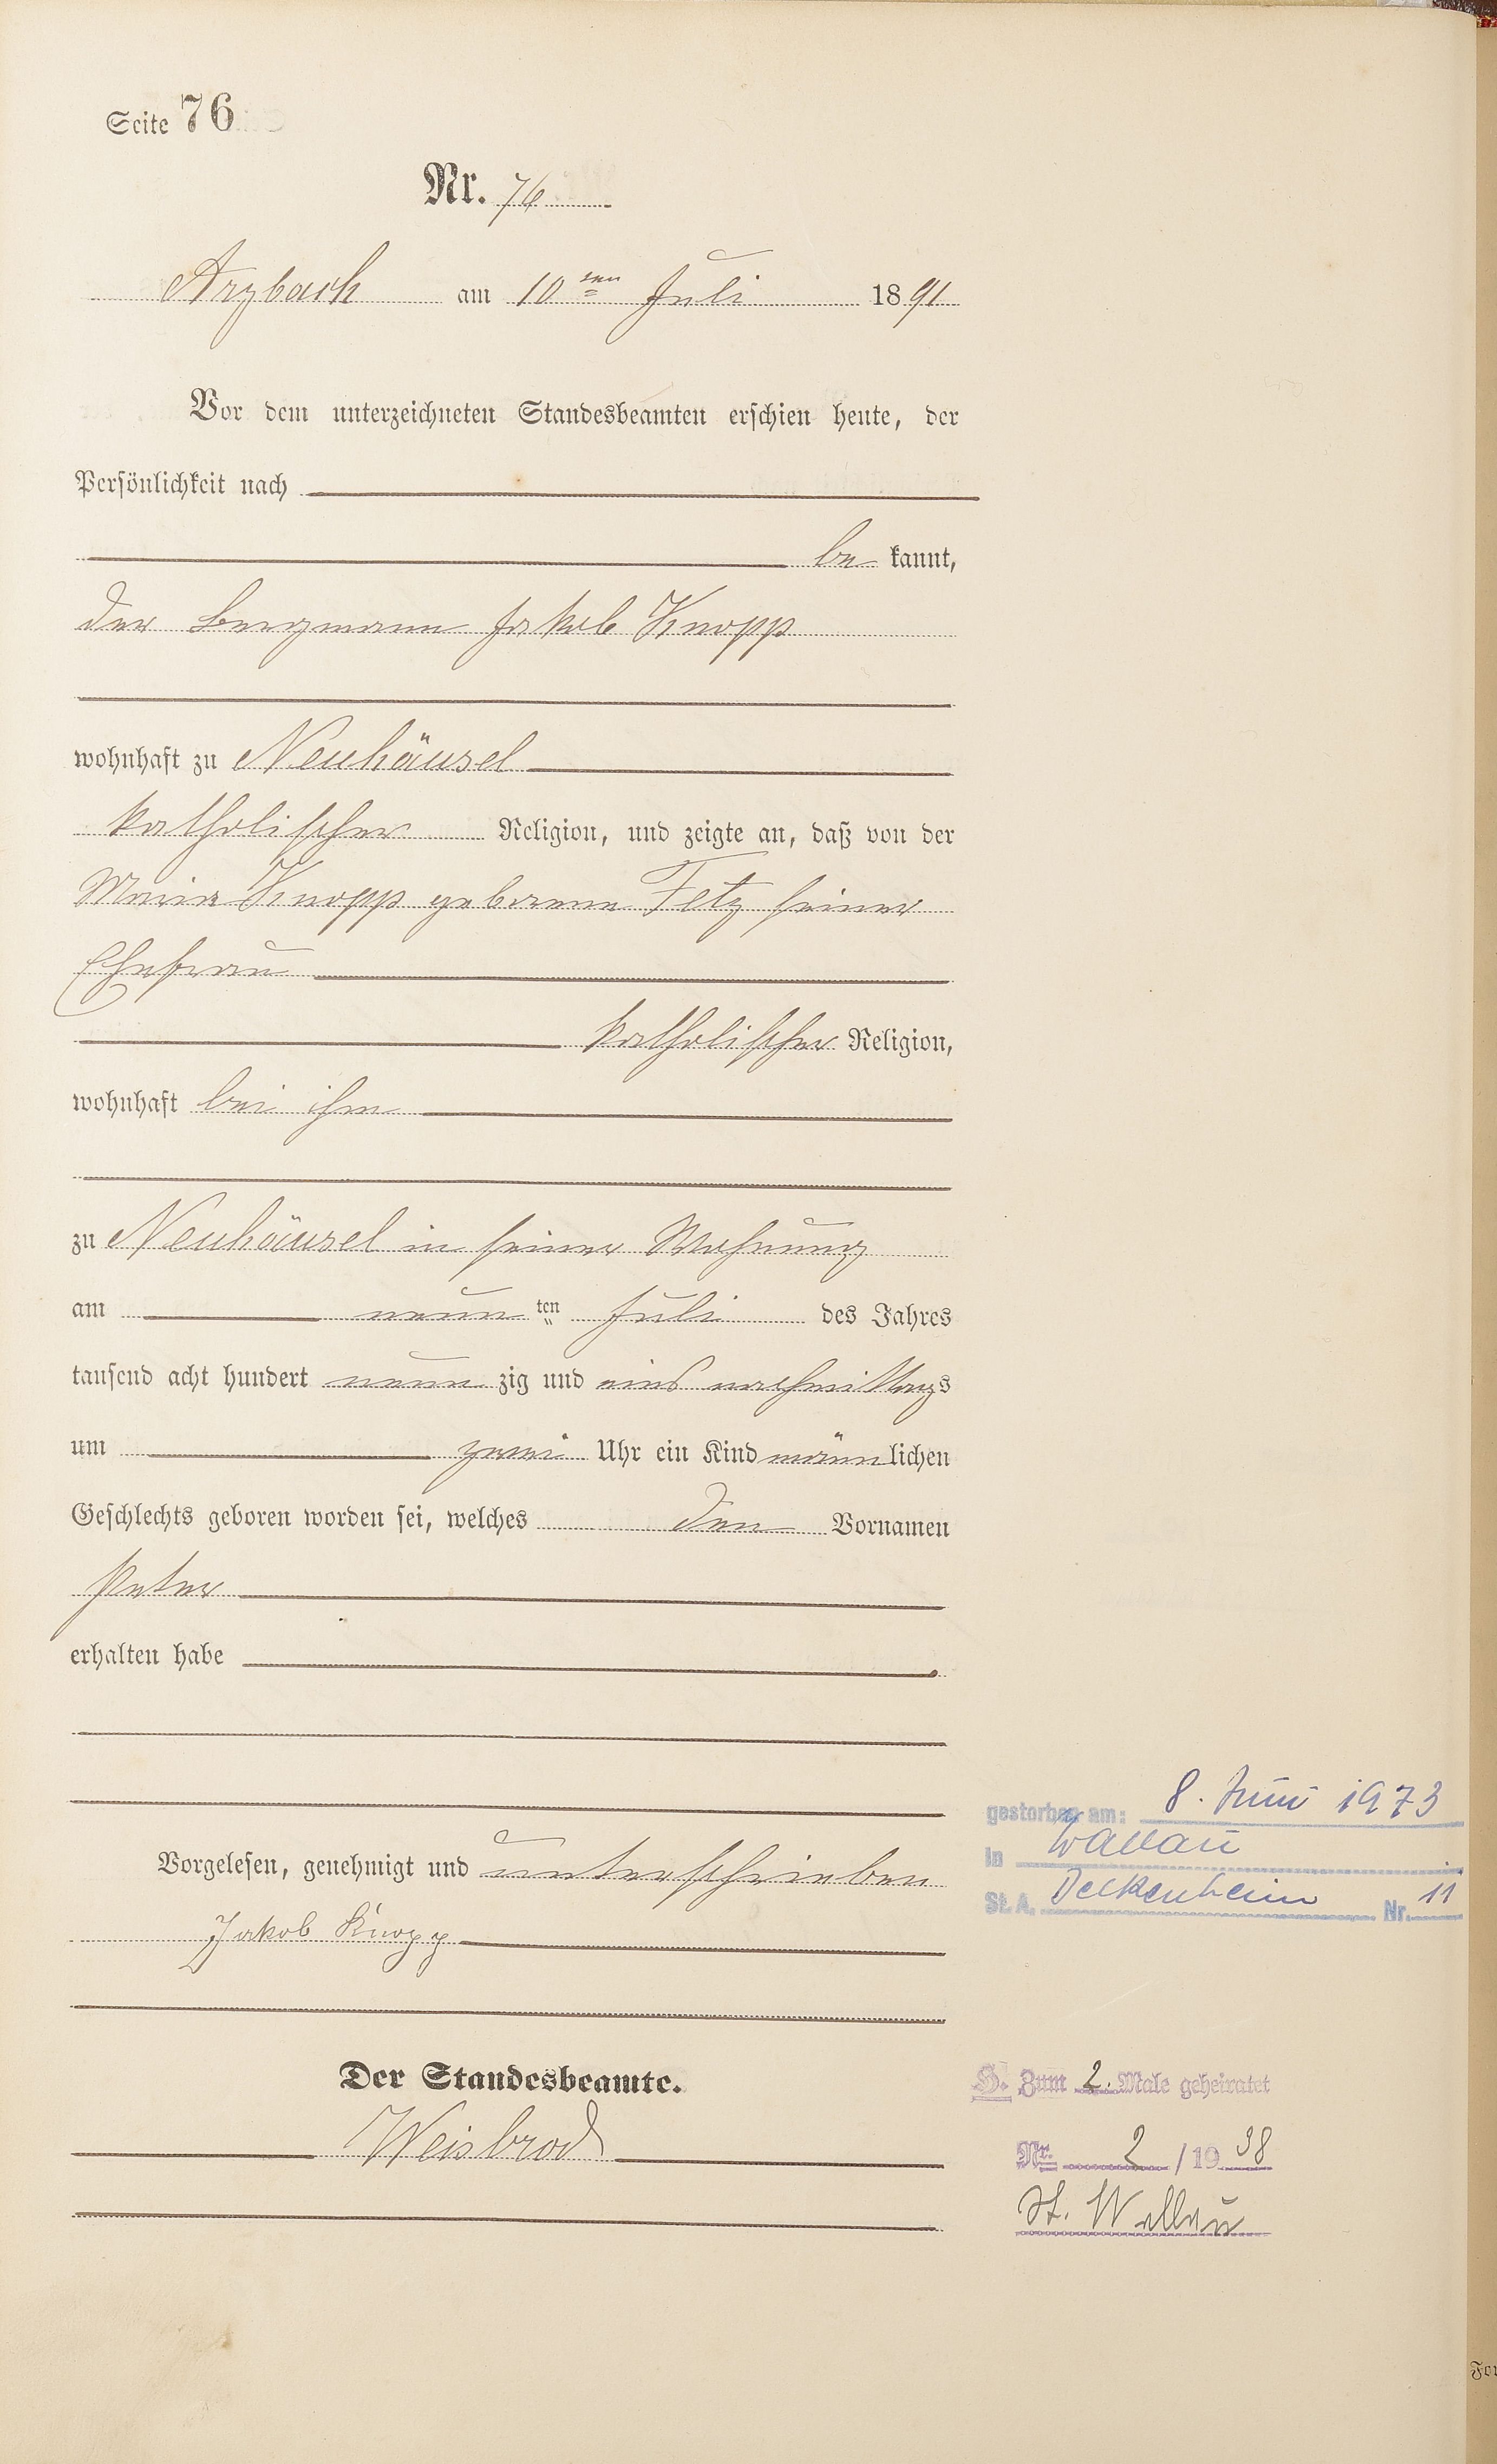 Seite 76
Nr. 76
Arzbach am 10ten Juli 1891
Vor dem unterzeichneten Standesbeamten erschien heute, der
Persönlichkeit nach
be kannt,
der Bergmann Jakob Knopp
wohnhaft zu Neuhäusel
katholischer Religion, und zeigte an, daß von der
Maria Knopp geborene Fetz seiner
Ehefrau
katholischer Religion,
wohnhaft bei ihm
zu Neuhäusel in seiner Wohnung
am neun ten Juli des Jahres
tausend acht hundert neun zig und eins nachmittags
um zwei Uhr ein Kind männlichen
Geschlechts geboren worden sei, welches den Vornamen
Peter
erhalten habe
Vorgelesen, genehmigt und unterschrieben
Jakob Knopp
Der Standesbeamte.
Weisbrod
gestorben am: 8. Juni 1973
in Wallau
St. A. Delkenheim Nr. 11
H. Zum 2. Male geheiratet
Nr. 2 / 19 38
St. Wallau